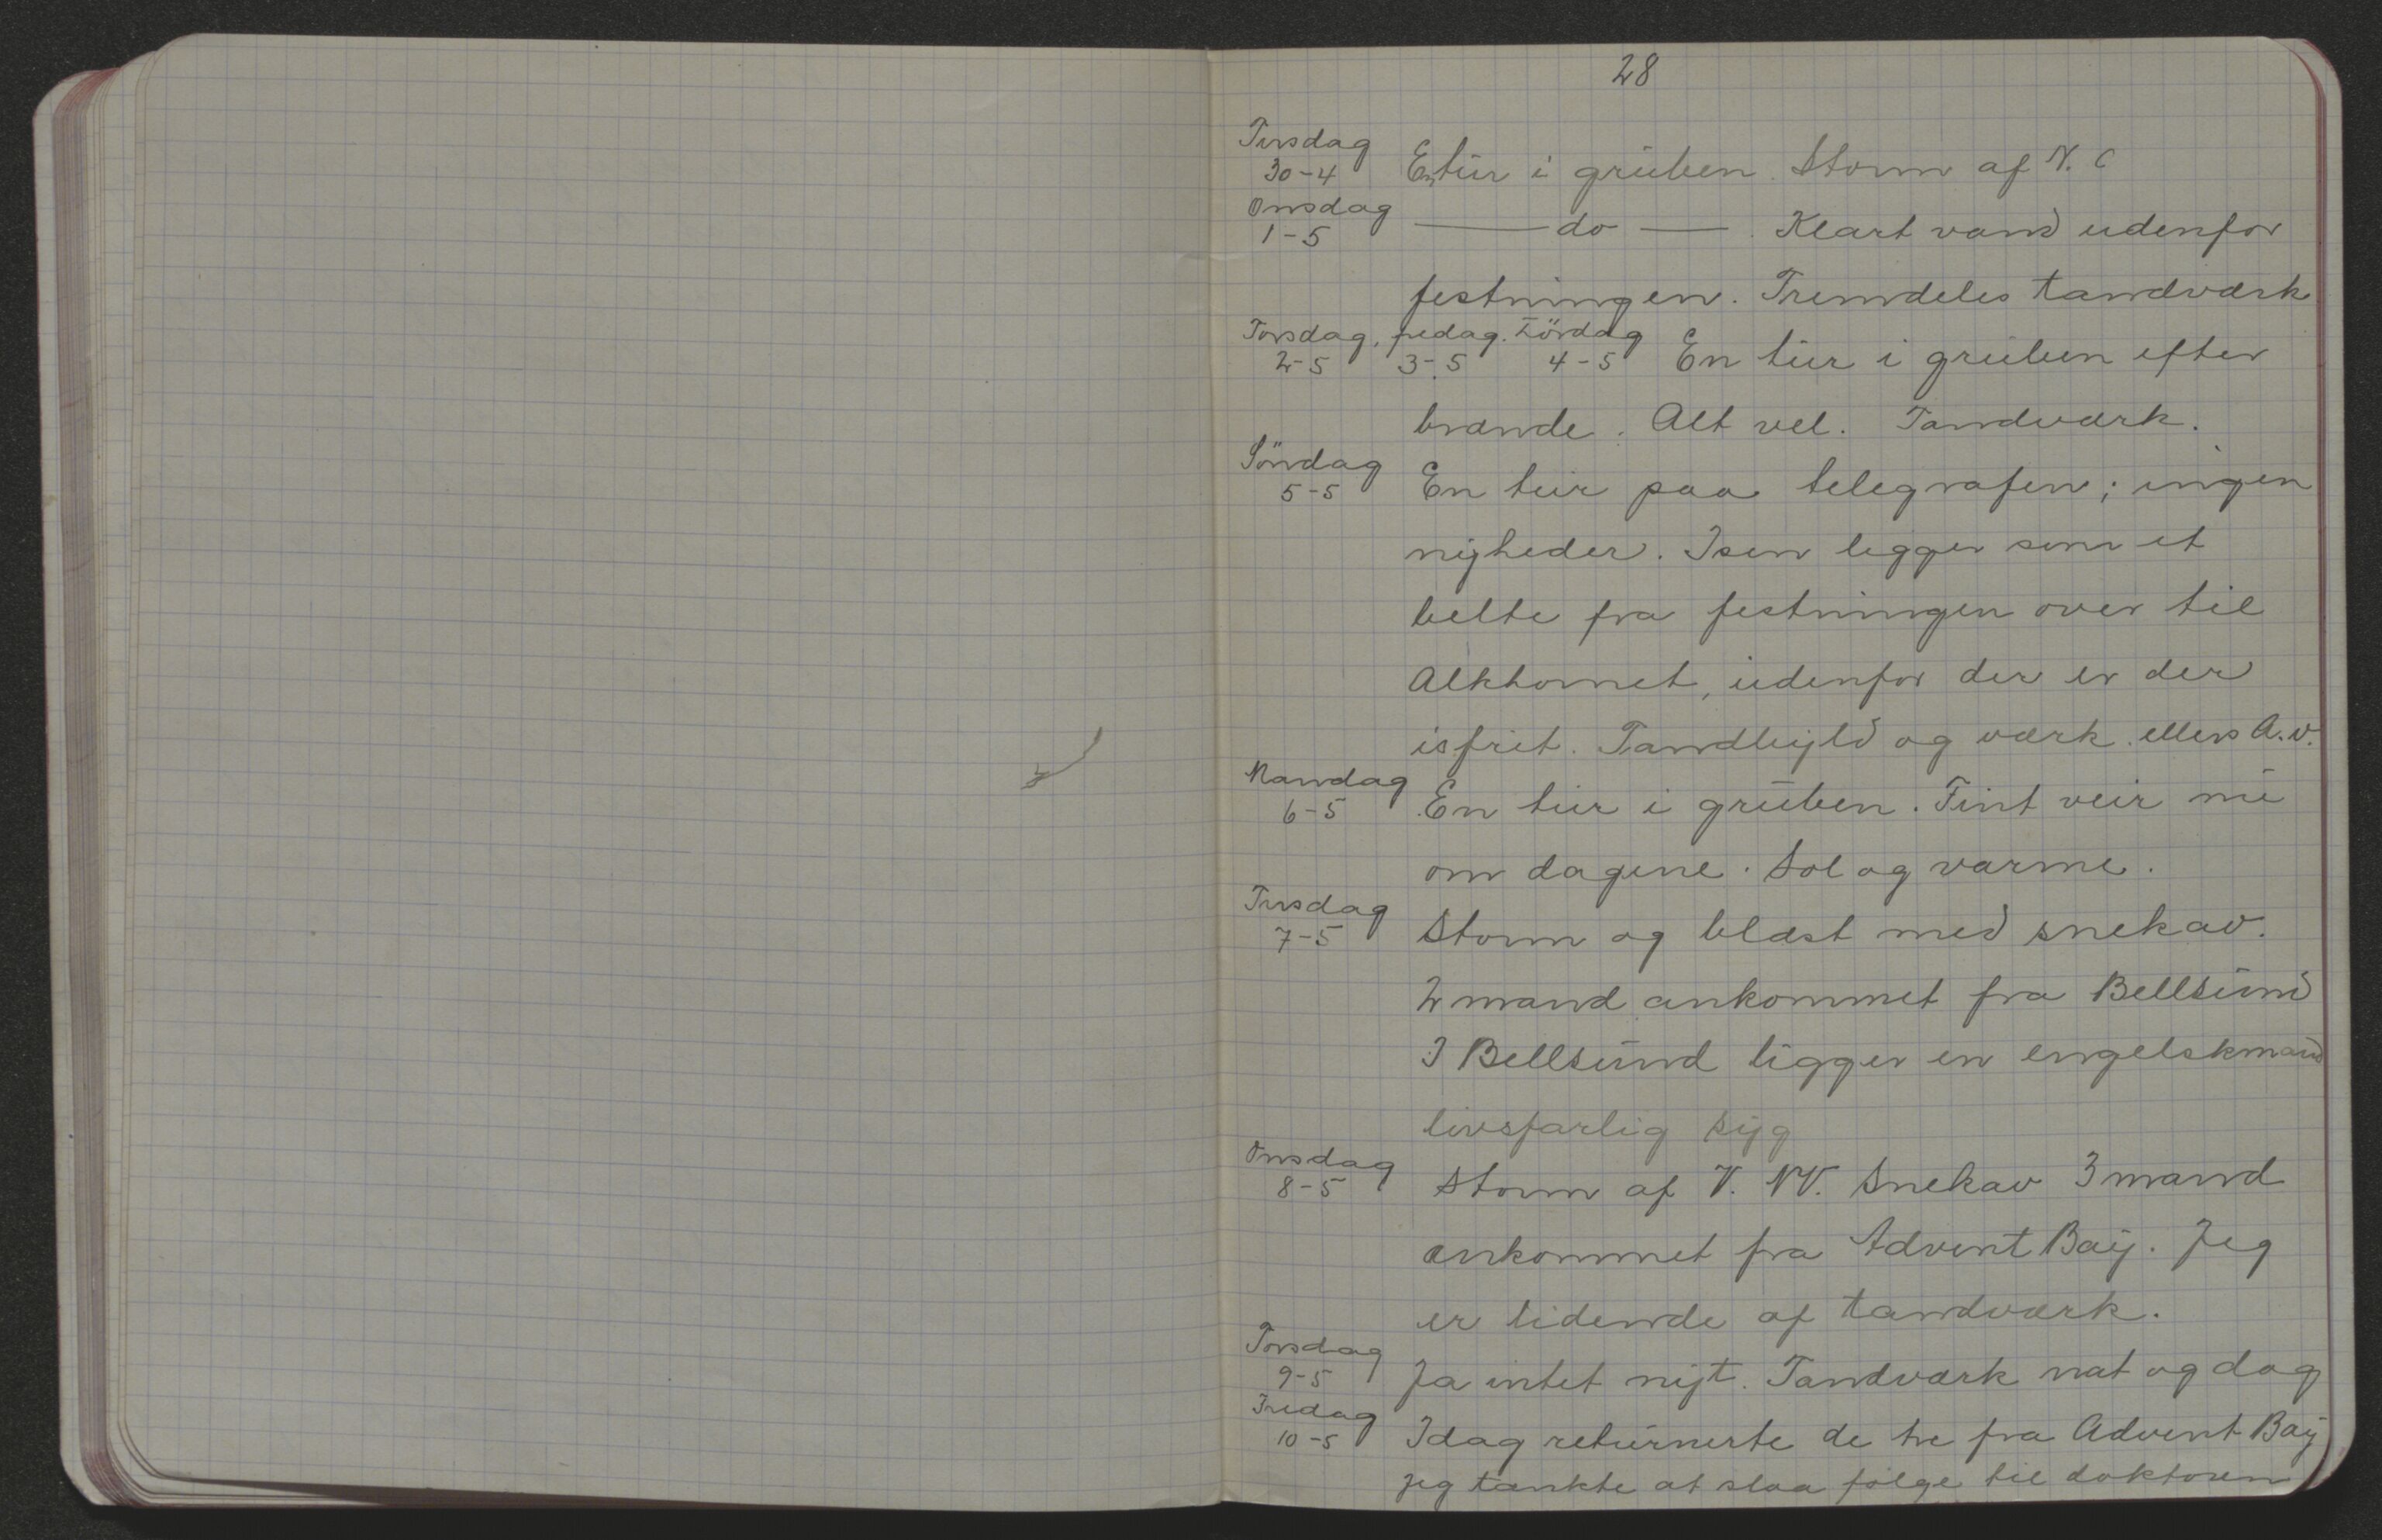 28
Tirsdag
30-4 En tur i gruben. Storm af N. O
Onsdag
1-5 — do — . Klart vand udenfor
festningen. Fremdeles tandværk
Torsdag, fredag. Lördag
2-5 3-5 4-5 En tur i gruben efter
brænde. Alt vel. Tandværk.
Söndag
5-5 En tur paa telegrafen; ingen
nyheder. Isen legger som et
belte fra festningen over til
Alkhornet, udenfor der er der
isfrit. Tandbyld og værk. ellers A.v.
Mandag
6-5 En tur i gruben. Fint veir nu
om dagene. Sol og varme.
Tirsdag
7-5 Storm og blæst med snekav.
2 mand ankommet fra Bellsund
I Bellsund ligger en engelskmand
livsfarlig syg
Onsdag
8-5 Storm af V. NV. Snekav 3 mand
ankommet fra Advent Bay. Jeg
er lidende af tandværk.
Torsdag
9-5 Ja intet nyt. Tandværk nat og dag
Fredag
10-5 Idag returnerte de tre fra Advent Bay
jeg tænkte at slaa følge til doktoren